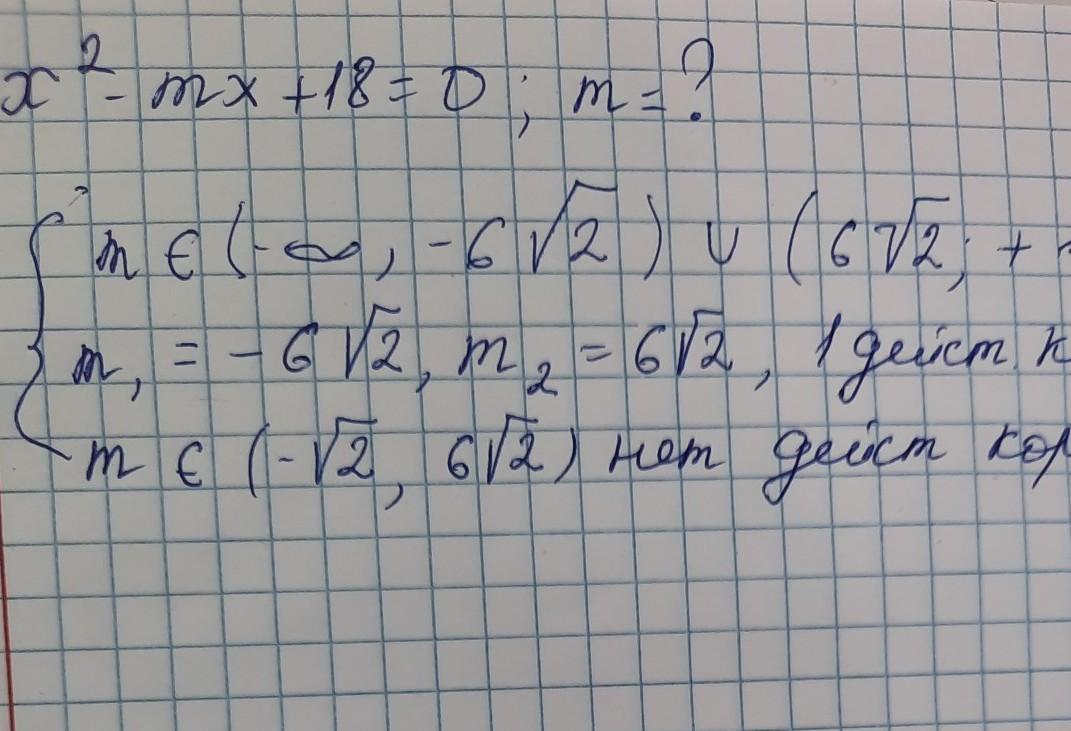 x² - mx + 18 = 0 ; m = ?
m ∈ (-∞, -6√2) ∪ (6√2; +
m₁ = -6√2, m₂ = 6√2, 1 дейст. к
m ∈ (-√2, 6√2) нет дейст кор